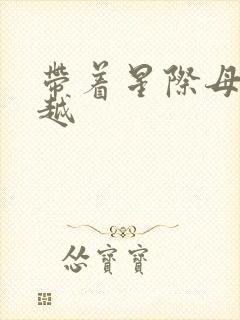 帶着星際母
越
怂寶寶